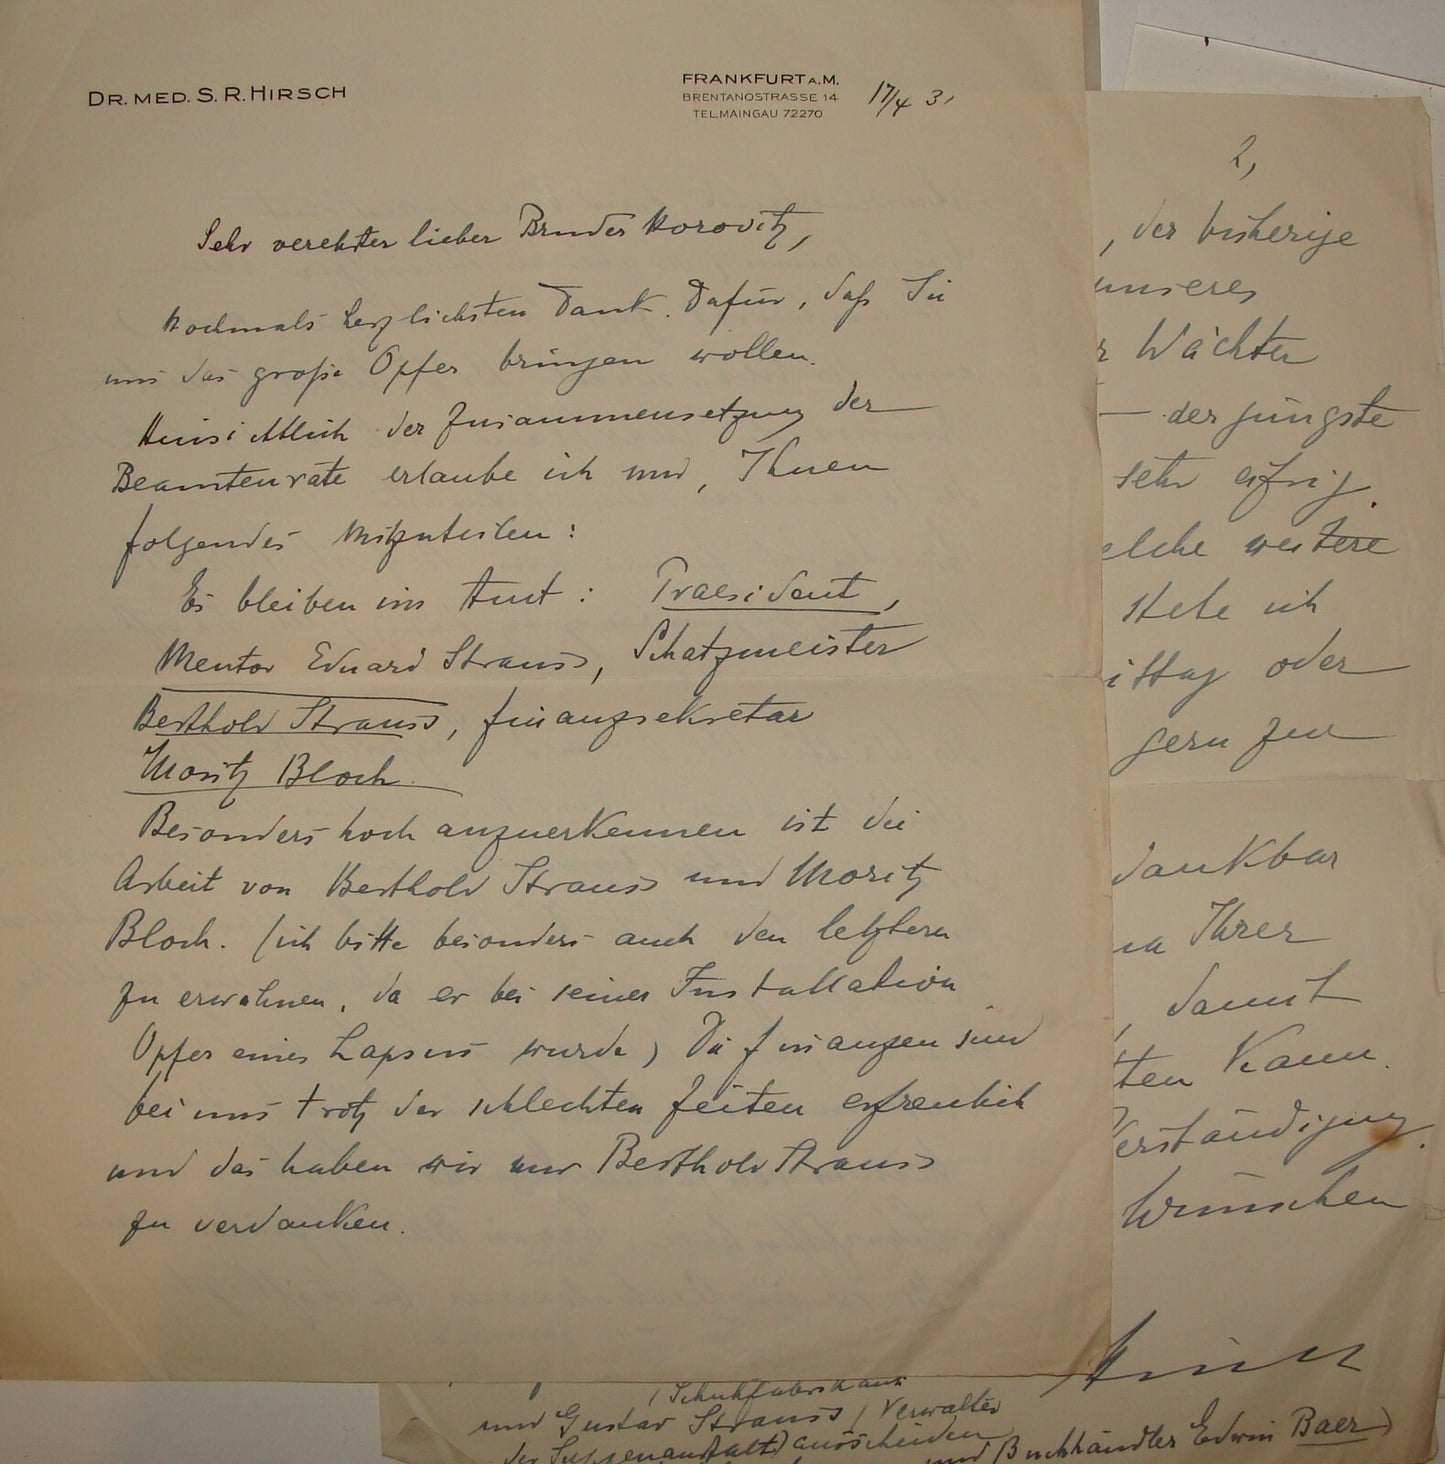 DR. MED. S. R. HIRSCH
FRANKFURT A. M.
BRENTANOSTRASSE 14
TEL. MAINGAU 72270
17/4 31
Sehr verehrter lieber Bruder Horovitz,
Nochmals herzlichsten Dank dafür, daß Sie
uns das große Opfer bringen wollen.
Hinsichtlich der Zusammensetzung der
Beamtenräte erlaube ich mir, Ihnen
folgendes mitzuteilen:
Es bleiben im Amt: Praesident,
Mentor Eduard Strauss, Schatzmeister
Berthold Strauss, Finanzsekretär
Moritz Bloch.
Besonders hoch anzuerkennen ist die
Arbeit von Berthold Strauss und Moritz
Bloch. (ich bitte besonders auch den letztern
zu erwähnen, da er bei seiner Installation
Opfer eines Lapsus wurde) Die Finanzen sind
bei uns trotz der schlechten Zeiten erfreulich
und das haben wir nur Berthold Strauss
zu verdanken.
2,
, der bisherige
unseres
r Wächter
— der jüngste
sehr eifrig.
elche weitere
stehe ich
ittag oder
gern zur
dankbar
Ihrer
, damit
ten kann.
Verständigung.
Wünschen
Hirsch
(Schuhfabrikant
und Gustav Strauss (Verwalter
der Suppenanstalt) ausscheiden
und Buchhändler Edwin Baer)